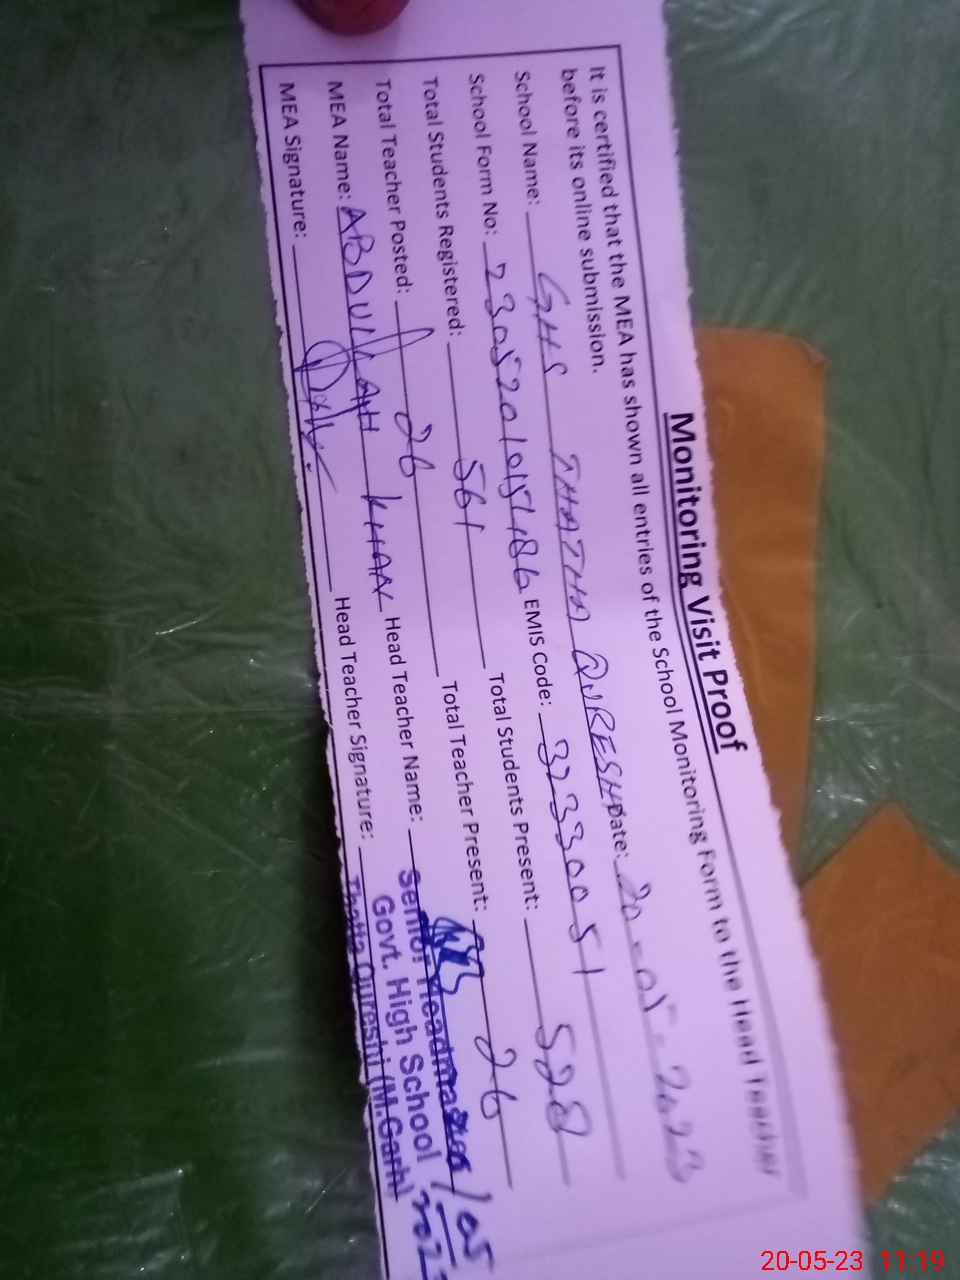 Monitoring Visit Proof
It is certified that the MEA has shown all entries of the School Monitoring Form to the Head Teacher
before its online submission.
School Name: GHS THATHA QURESHI Date: 20-05-2023
School Form No: EMIS Code: 32330051
Total Students Registered: 561 Total Students Present: 528
Total Teacher Posted: 26 Total Teacher Present: 26
MEA Name: ABDULLAH KHAN Head Teacher Name:
MEA Signature: Head Teacher Signature:
Senior Headmaster
Govt. High School
Thatta Qureshi (M.Garh)
20-05-23 11:19